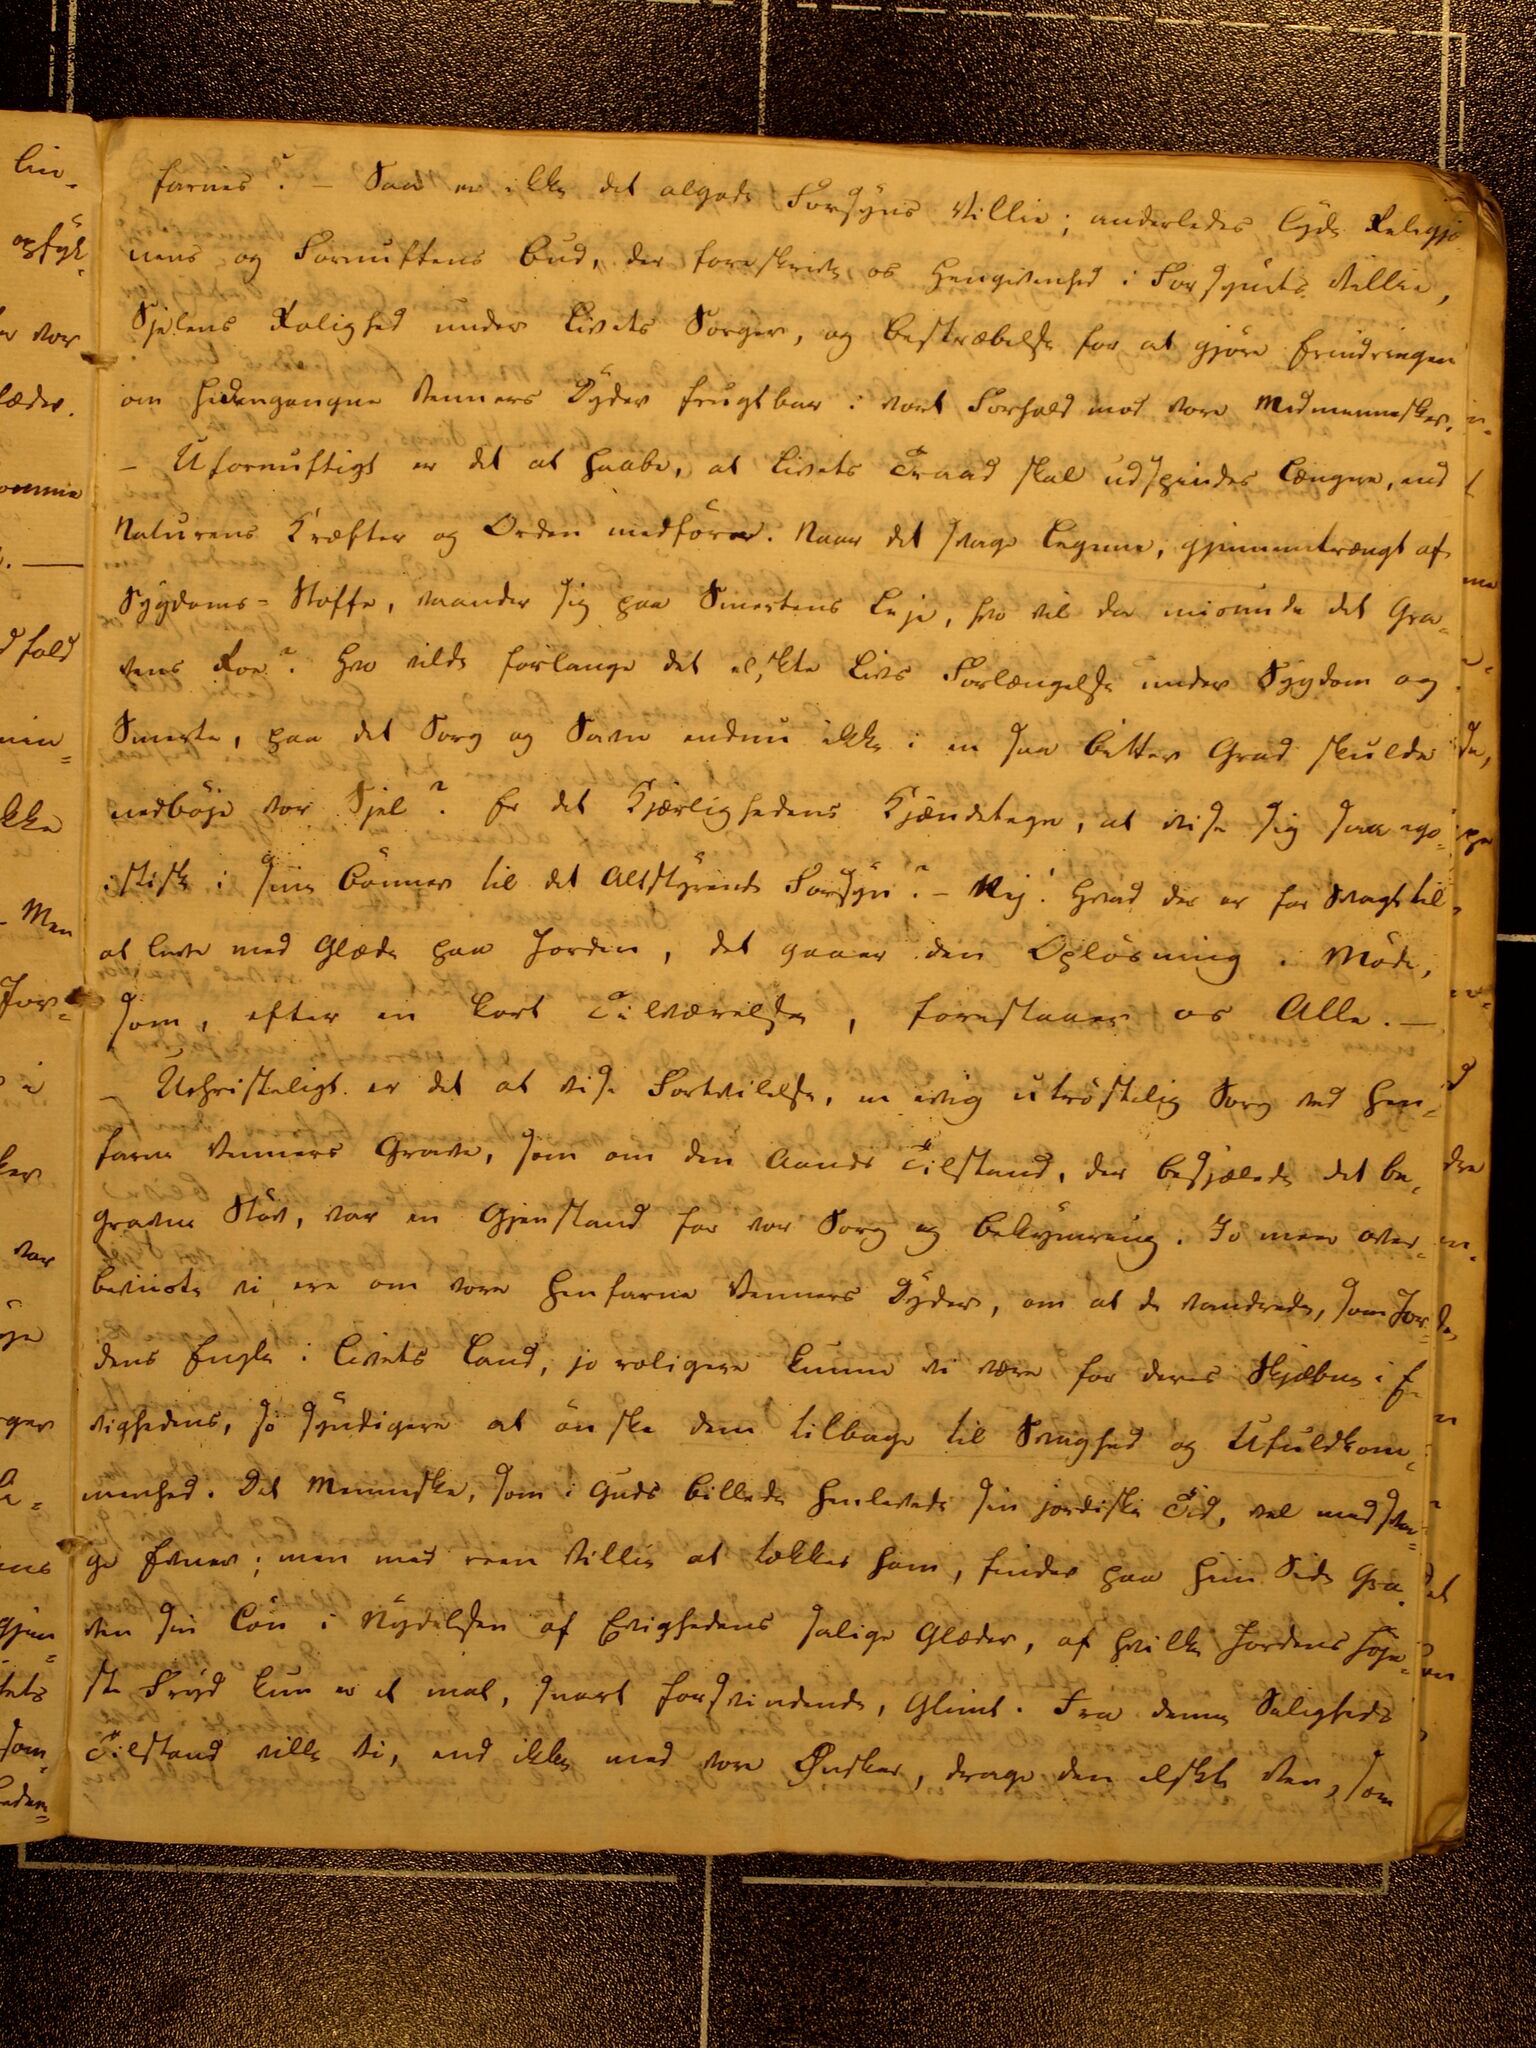 farnes? – Saa er ikke det algode Forsyns Villie; anderledes lyde Religjo-
nens og Fornuftens Bud, der foreskrive os Hengivenhed i Forsynets Villie,
Sjelens Rolighed under Livets Sorger, og Bestræbelse for at gjöre Erindringen
om hedengangne Venners Dyder frugtbar i vort Forhold mod vore Medmennesker.
– Ufornuftigt er det at haabe, at Livets Traad skal udspindes længere, end
Naturens Kræfter og Orden medförer. Naar det svage Legeme, gjennemtrængt af
Sygdoms-Stoffe, vaander sig paa Smertens Leje, hvo vil da misunde det Gra-
vens Roe? Hvo vilde forlange det elskte Livs Forlængelse under Sygdom og
Smerte, paa det Sorg og Savn endnu ikke i en saa bitter Grad skulde
nedböje vor Sjel? Er det Kjærlighedens Kjændetegn, at vise sig saa ego-
istisk i sine Bönner til det Altstyrende Forsyn? – Nej! Hvad der er for svagt til
at leve med Glæde paa Jorden, det gaaer den Oplösning i Möde,
som, efter en kort Tilværelse, forestaaer os Alle. –
– Uchristeligt er det at vise Fortvilelse, en evig utröstelig Sorg ved hen-
farne Venners Grave, som om den Aands Tilstand, der besjælede det be-
gravne Stöv, var en Gjenstand for vor Sorg og Bekymring. Jo meer over-
beviiste vi ere om vore henfarne Venners Dyder, om at de vandrede, som Jor-
dens Engle i Livets Land, jo roligere kunne vi være for deres Skjæbne i E-
vigheden, jo syndigere at önske dem tilbage til Svaghed og Ufuldkom-
menhed. Det Menneske, som i Guds Billede henlevede sin jordiske Tid, vel med sva-
ge Evner; men med reen Villie at tækkes ham, finder paa hiin Side Gra-
ven sin Lön i Nydelsen af Evighedens salige Glæder, af hvilke Jordens höje-
ste Fryd kun er et mat, snart forsvindende, Glimt. Fra denne Saligheds
Tilstand ville vi, end ikke med vore Önsker, drage den elskte Ven, som